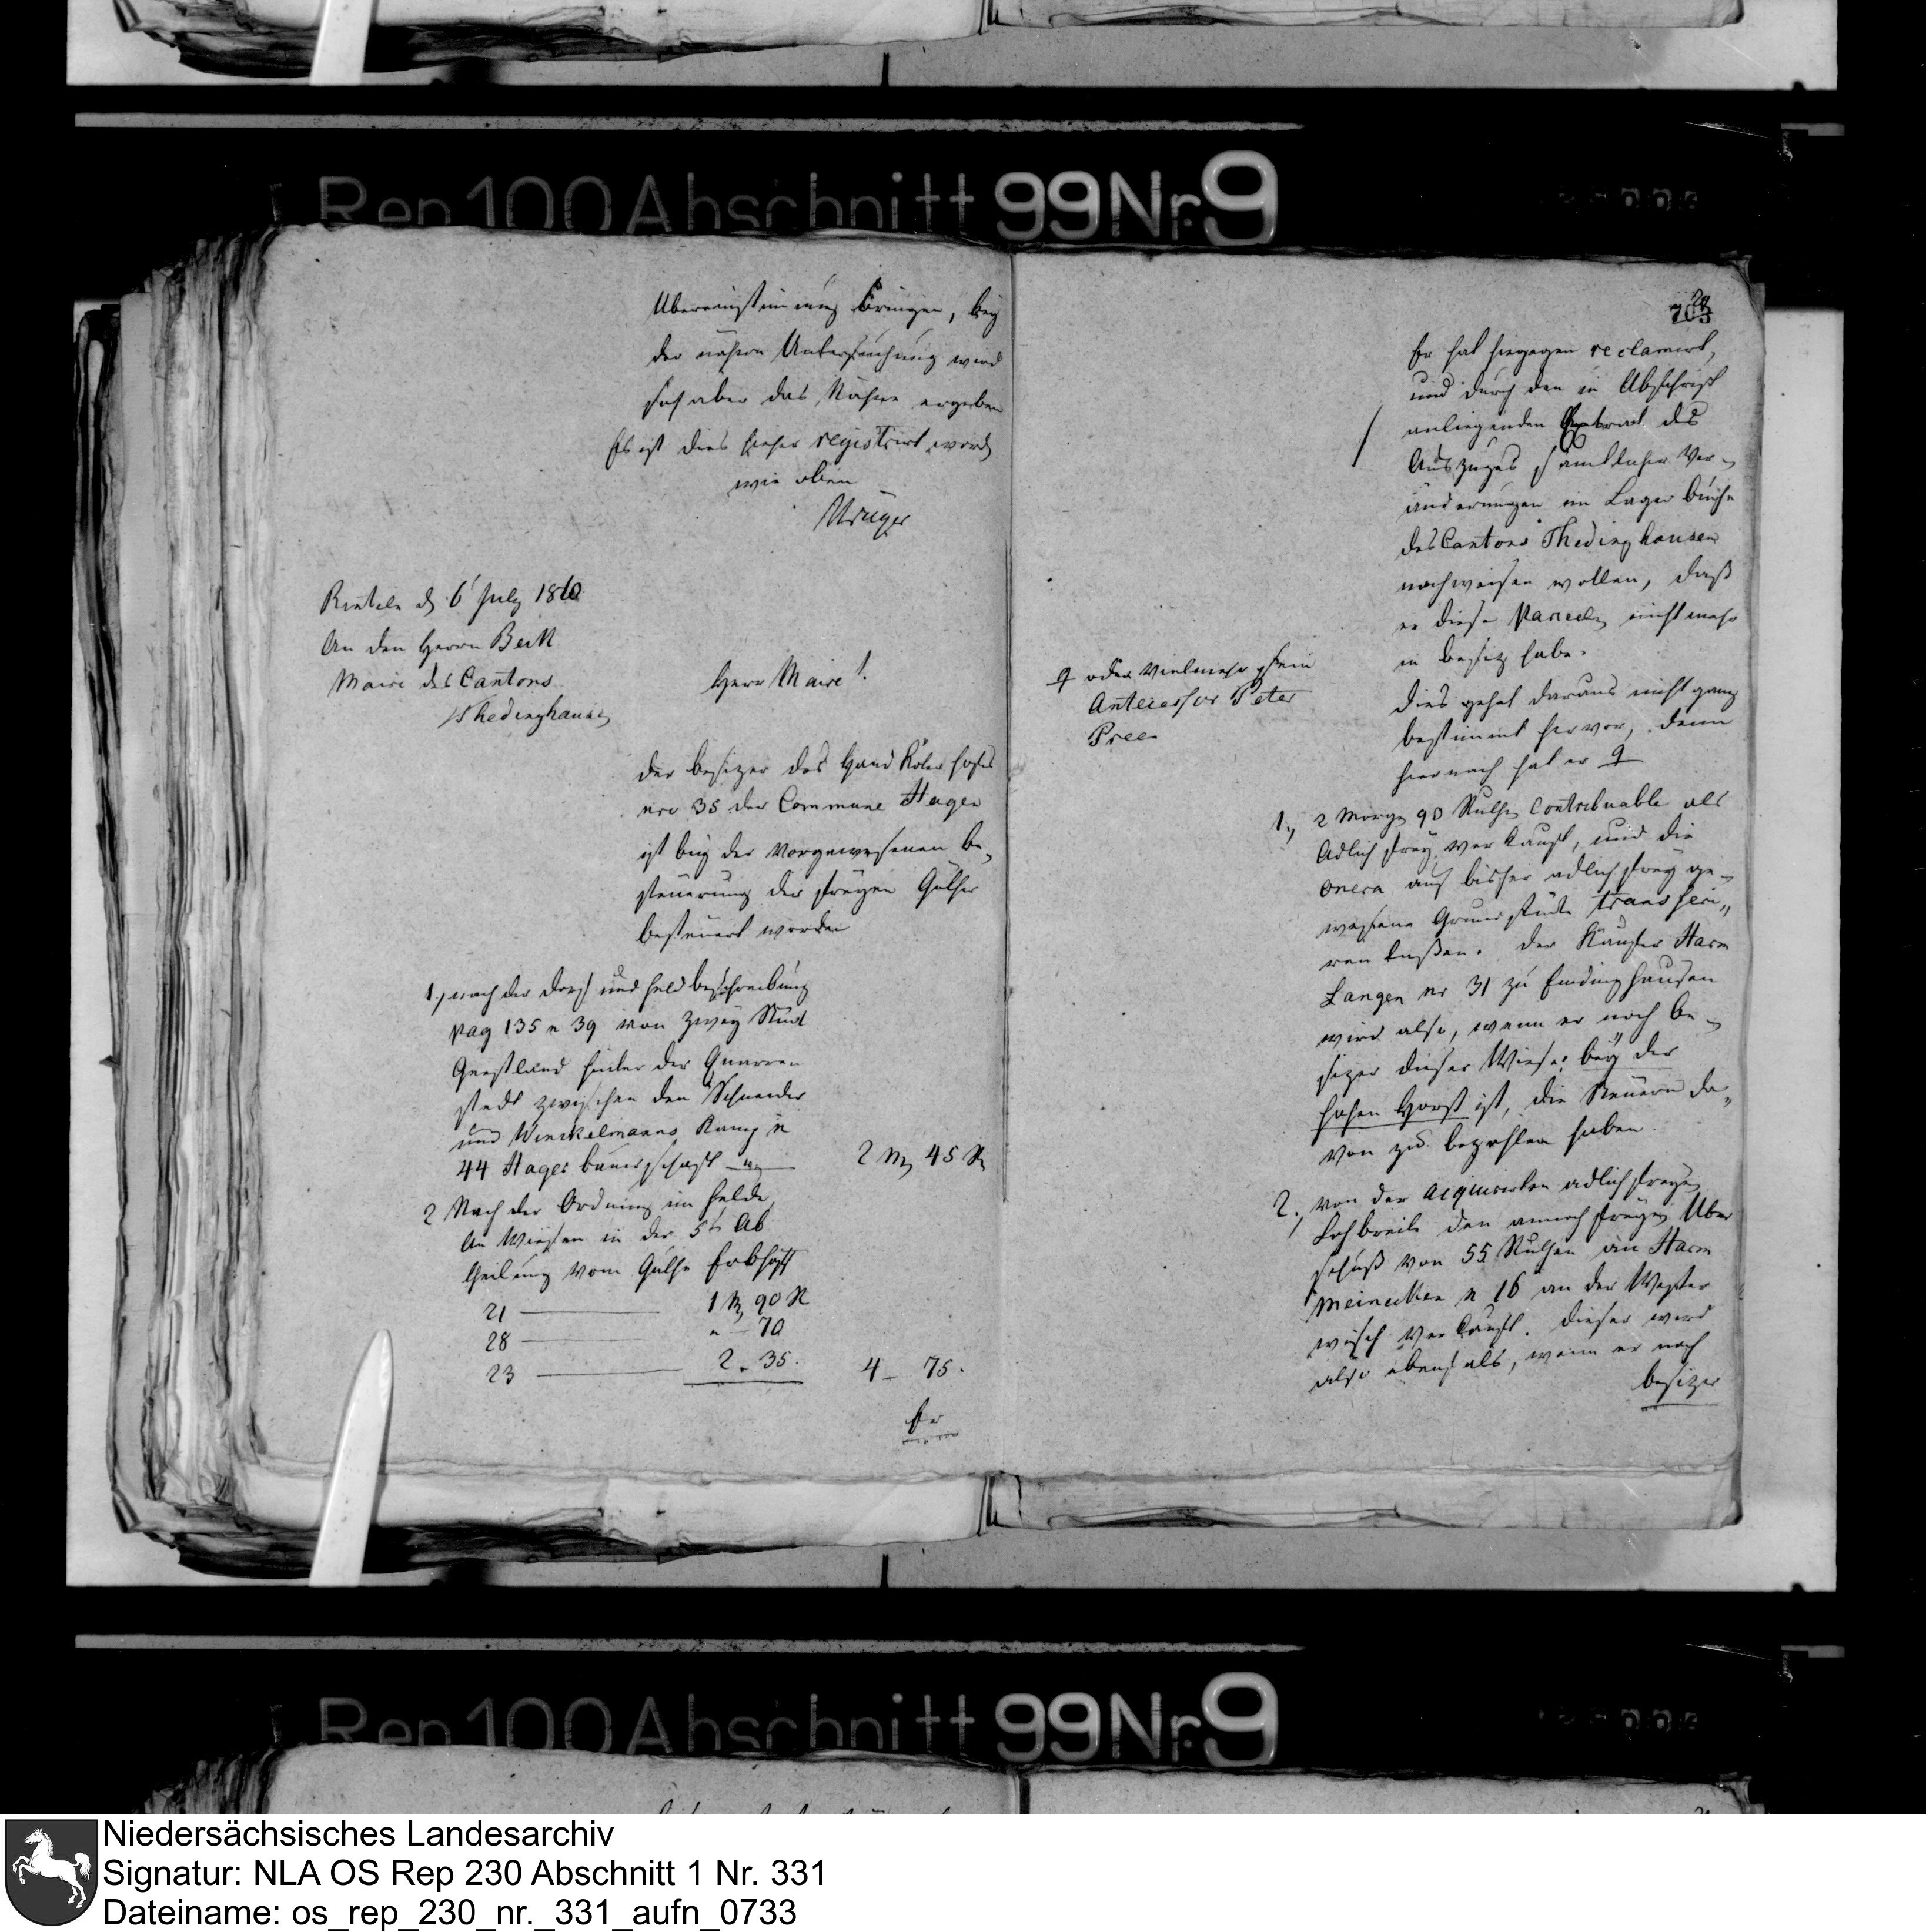 Rep 100 Abschnitt 99 Nr. 9
Übereinstimmung bringen, bey
der nähern Untersuchung wird
sich aber das Nähere ergeben
Es ist dies hieher registrirt word
wie oben
Krüger
Rinteln d 6 July 1810
An den Herrn Beik
Maire des Cantons
Thedinghausen
Herr Maire!
der besizer des Hand Köler hofes
nro 35 der Commune Hagen
ist bey der vorgewesenen be-
steuerung der freyen Güther
besteuert worden
1, nach der Dorf und Feldbeschreibung
pag 135 n 39 von zwey Stück
Geestland hinter der Quarren
stedt zwischen den Schneider
und Winckelmanns Kamp n
44 Hager bauerschaft
2 M 45 R
2 Nach der Ordnung im Felde
An Wiesen in der 5t Ab
theilung vom Guthe Erbhoff
21 — 1 M 90 R
28 — " — 70
23 — 2 . 35.
4 — 75.
Er
703
Er hat hiegegen reclamirt,
und durch den in Abschrift
anliegenden Extract des
Auszuges sämtlicher Ver-
änderungen im Lager buche
des Cantons Thedinghausen
nachweisen wollen, daß
er diese Parcelen nicht mehr
in besitz habe.
dies gehet daraus nicht ganz
bestimmt hervor, denn
hiernach hat er
oder vielmehr sein
Antecessor Peter
1, 2 Morgen 90 Ruthen Contribuable als
Adlich frey verkauft, und die
onera auf bisher adlich frey ge-
wesene Grundstücke transferi-
ren laßen. der Käufer Harm
Langen nr 31 zu Emdinghausen
wird also, wenn er noch be-
sizer dieser Wiese, bey der
hohen Horst ist, die Steuern da-
von zu bezahlen haben.
2., von der acquirirten adlich freyen
Lohbreite den annoch freyen Über
schuß von 55 Ruthen an Harm
Meineken n 16 an der Wester
wisch verkauft. dieser wird
also ebenfals, wenn er noch
besizer
Rep 100 Abschnitt 99 Nr. 9
Niedersächsisches Landesarchiv
Signatur: NLA OS Rep 230 Abschnitt 1 Nr. 331
Dateiname: os_rep_230_nr._331_aufn_0733